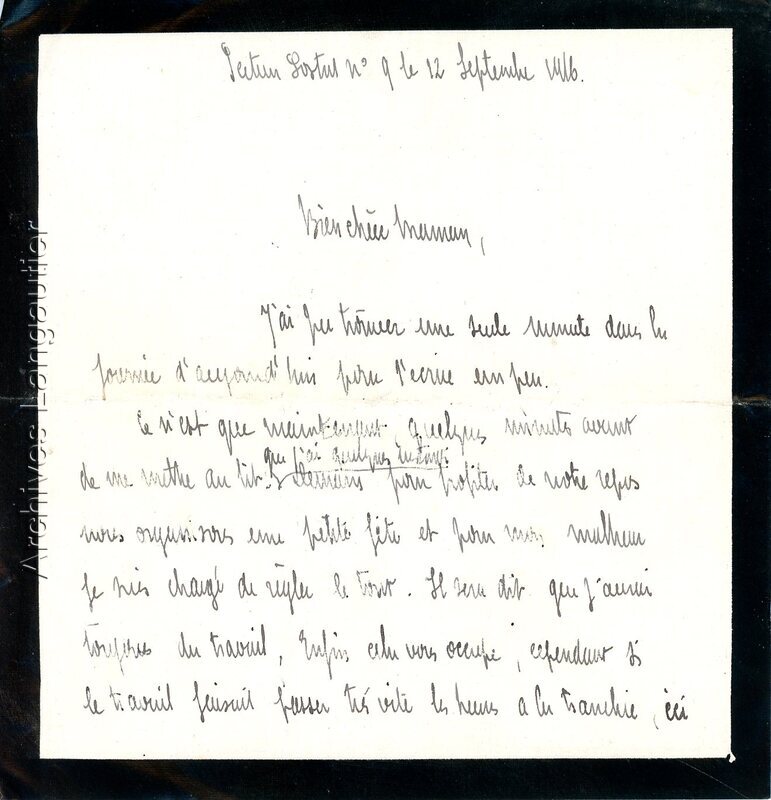 Secteur Postal n° 9 le 12 Septembre 1916.
Bien chère Maman,
J'ai pu trouver une seule minute dans la
journée d'aujourd'hui pour t'écrire un peu.
Ce n'est que maintenant, quelques minutes avant
que j'ai quelques instants.
de me mettre au lit. Demain pour profiter de notre repos
nous organisons une petite fête et pour mon malheur
je suis chargé de régler le tout. Il sera dit que j'aurai
toujours du travail, Enfin cela vous occupe, cependant si
le travail faisait passer très vite les heures a la tranchée, ici
Archives Langautier